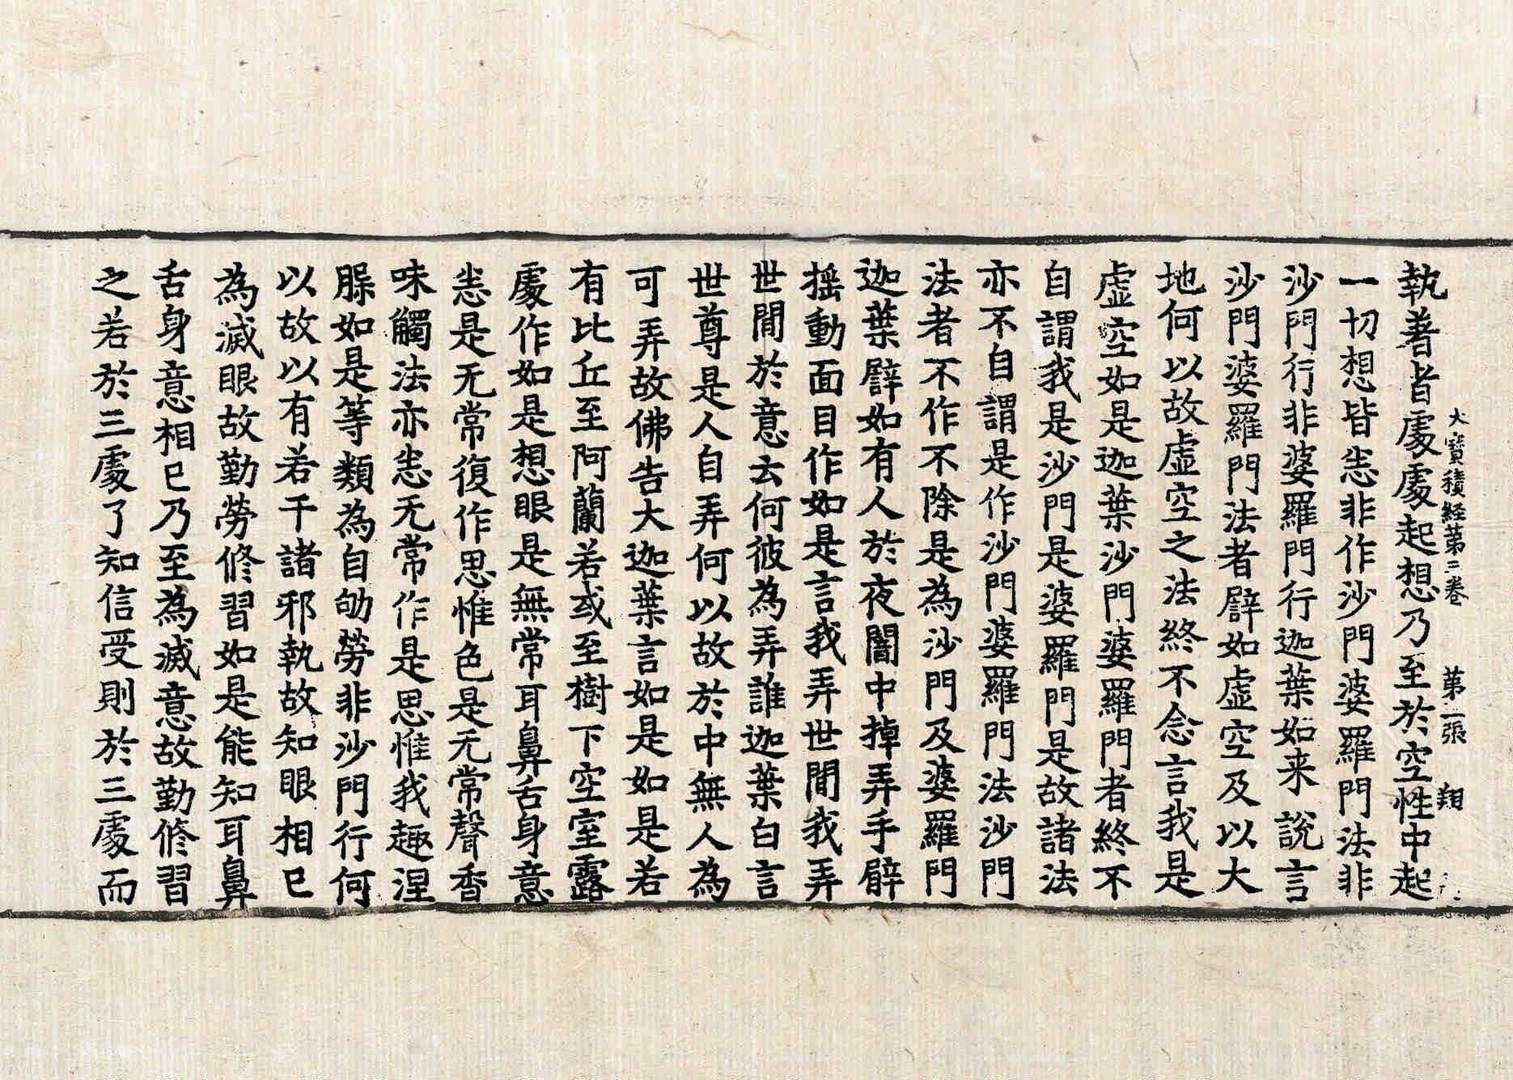 大寶積経苐二卷　苐二張　翔
執著者處處起想乃至於空性中起
一切想皆恙非作沙門婆羅門法非
沙門行非婆羅門行迦葉如来說言
沙門婆羅門法者譬如虚空及以大
地何以故虚空之法終不念言我是
虚空如是迦葉沙門婆羅門者終不
自謂我是沙門是婆羅門是故諸法
亦不自謂是作沙門婆羅門法沙門
法者不作不除是為沙門及婆羅門
迦葉譬如有人於夜闇中掉弄手臂
摇動面目作如是言我弄世間我弄
世間於意云何彼為弄誰迦葉白言
世尊是人自弄何以故於中無人為
可弄故佛告大迦葉言如是如是若
有比丘至阿蘭若或至樹下空室露
處作如是想眼是無常耳鼻舌身意
恙是无常復作思惟色是无常聲香
味觸法亦恙无常作是思惟我趣涅
臊如是等類為自劬勞非沙門行何
以故以有若干諸邪執故知眼相已
為滅眼故勤勞修習如是能知耳鼻
舌身意相已乃至為滅意故勤修習
之若於三處了知信受則於三處而